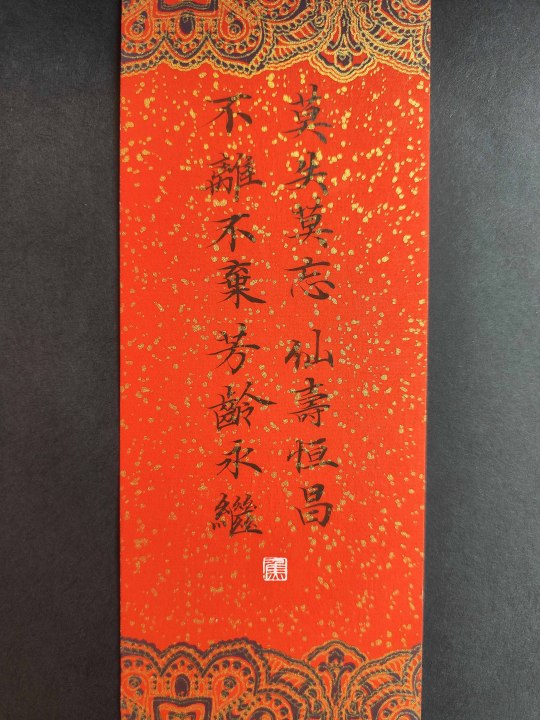 莫失莫忘 仙壽恒昌
不離不棄 芳齡永繼